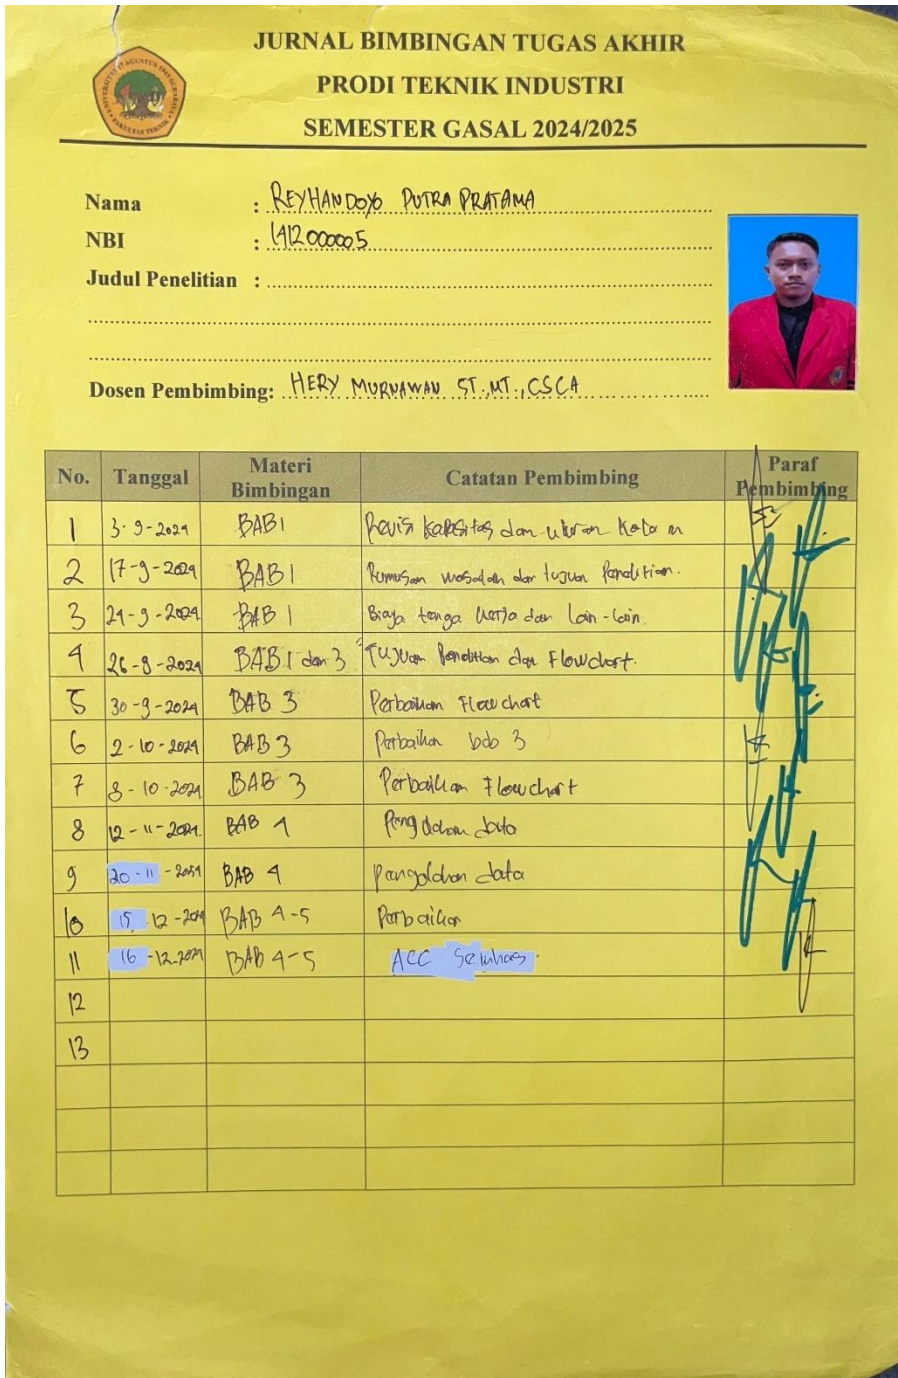 JURNAL BIMBINGAN TUGAS AKHIR
PRODI TEKNIK INDUSTRI
SEMESTER GASAL 2024/2025
Nama : REYHANDOYO PUTRA PRATAMA
NBI : 1412000005
Judul Penelitian :
Dosen Pembimbing: HERY MURNAWAN ST.,MT.,CSCA
No. Tanggal Materi Bimbingan Catatan Pembimbing Paraf Pembimbing
1 3-9-2024 BAB 1 Revisi kapasitas dan ukuran kolam
2 17-9-2024 BAB 1 Rumusan masalah dan tujuan Penelitian.
3 24-9-2024 BAB 1 Biaya tenga kerja dan lain-lain.
4 26-9-2024 BAB 1 dan 3 Tujuan Penelitian dan Flowchart.
5 30-9-2024 BAB 3 Perbaikan Flowchart
6 2-10-2024 BAB 3 Perbaikan bab 3
7 8-10-2024 BAB 3 Perbaikan Flowchart
8 12-11-2024. BAB 4 data
9 20-11-2024 BAB 4 Pengolahan data
10 15 12-2024 BAB 4-5 Perbaikan
11 16-12-2024 BAB 4-5 ACC Semhas.
12
13